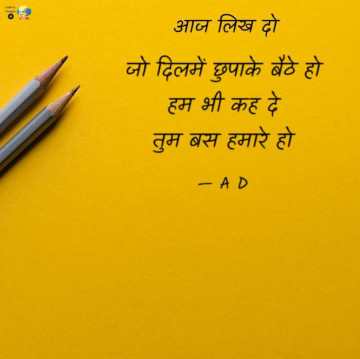 आज लिख दो
जो दिलमें छुपाके बैठे हो
हम भी कह दे
तुम बस हमारे हो
— A D